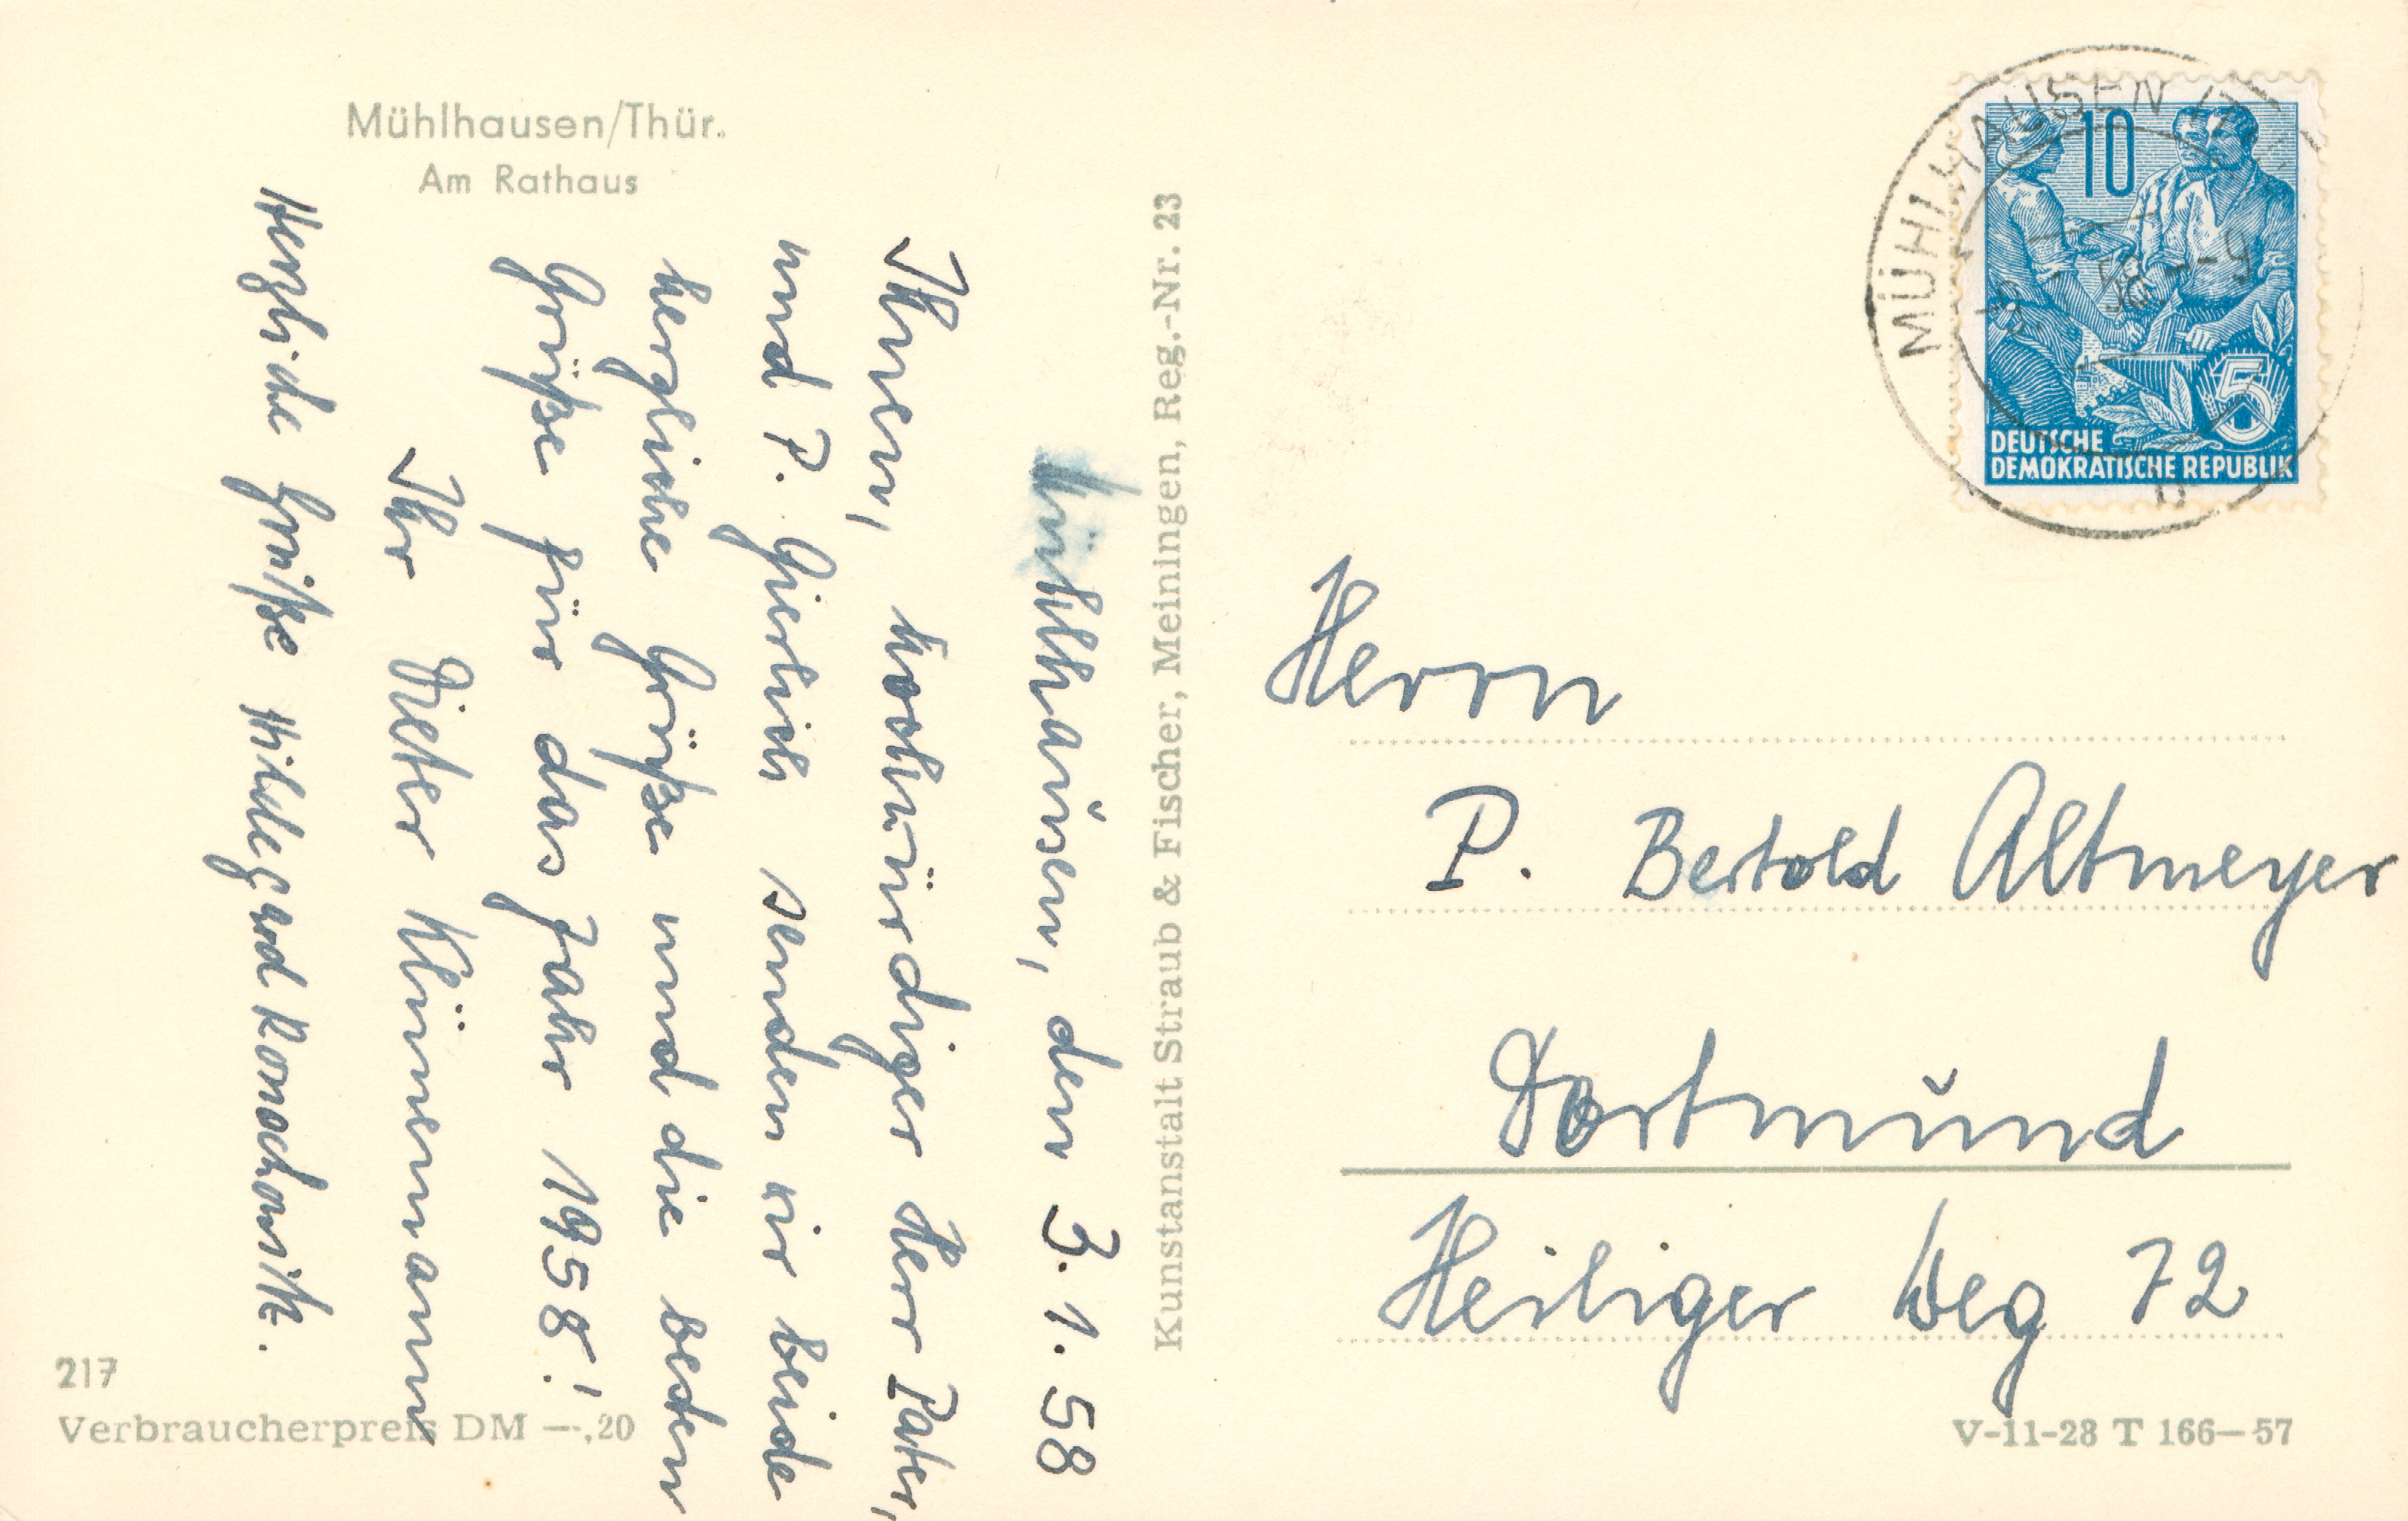 Mühlhausen/Thür.
Am Rathaus
Mühlhausen, den 3. 1. 58
Ihnen, hochwürdiger Herr Pater,
und P. Gierlich senden wir beide
herzliche Grüße und die besten
Grüße für das Jahr 1958!
Ihr Dieter Klünemann
Herzliche Grüße Hildegard
217
Verbraucherpreis DM —,20
Kunstanstalt Straub & Fischer, Meiningen, Reg.-Nr. 23
MÜHLHAUSEN
58.-9
10
5
DEUTSCHE
DEMOKRATISCHE REPUBLIK
Herrn
P. Bertold Altmeyer
Dortmund
Heiliger Weg 72
V-11-28 T 166—57